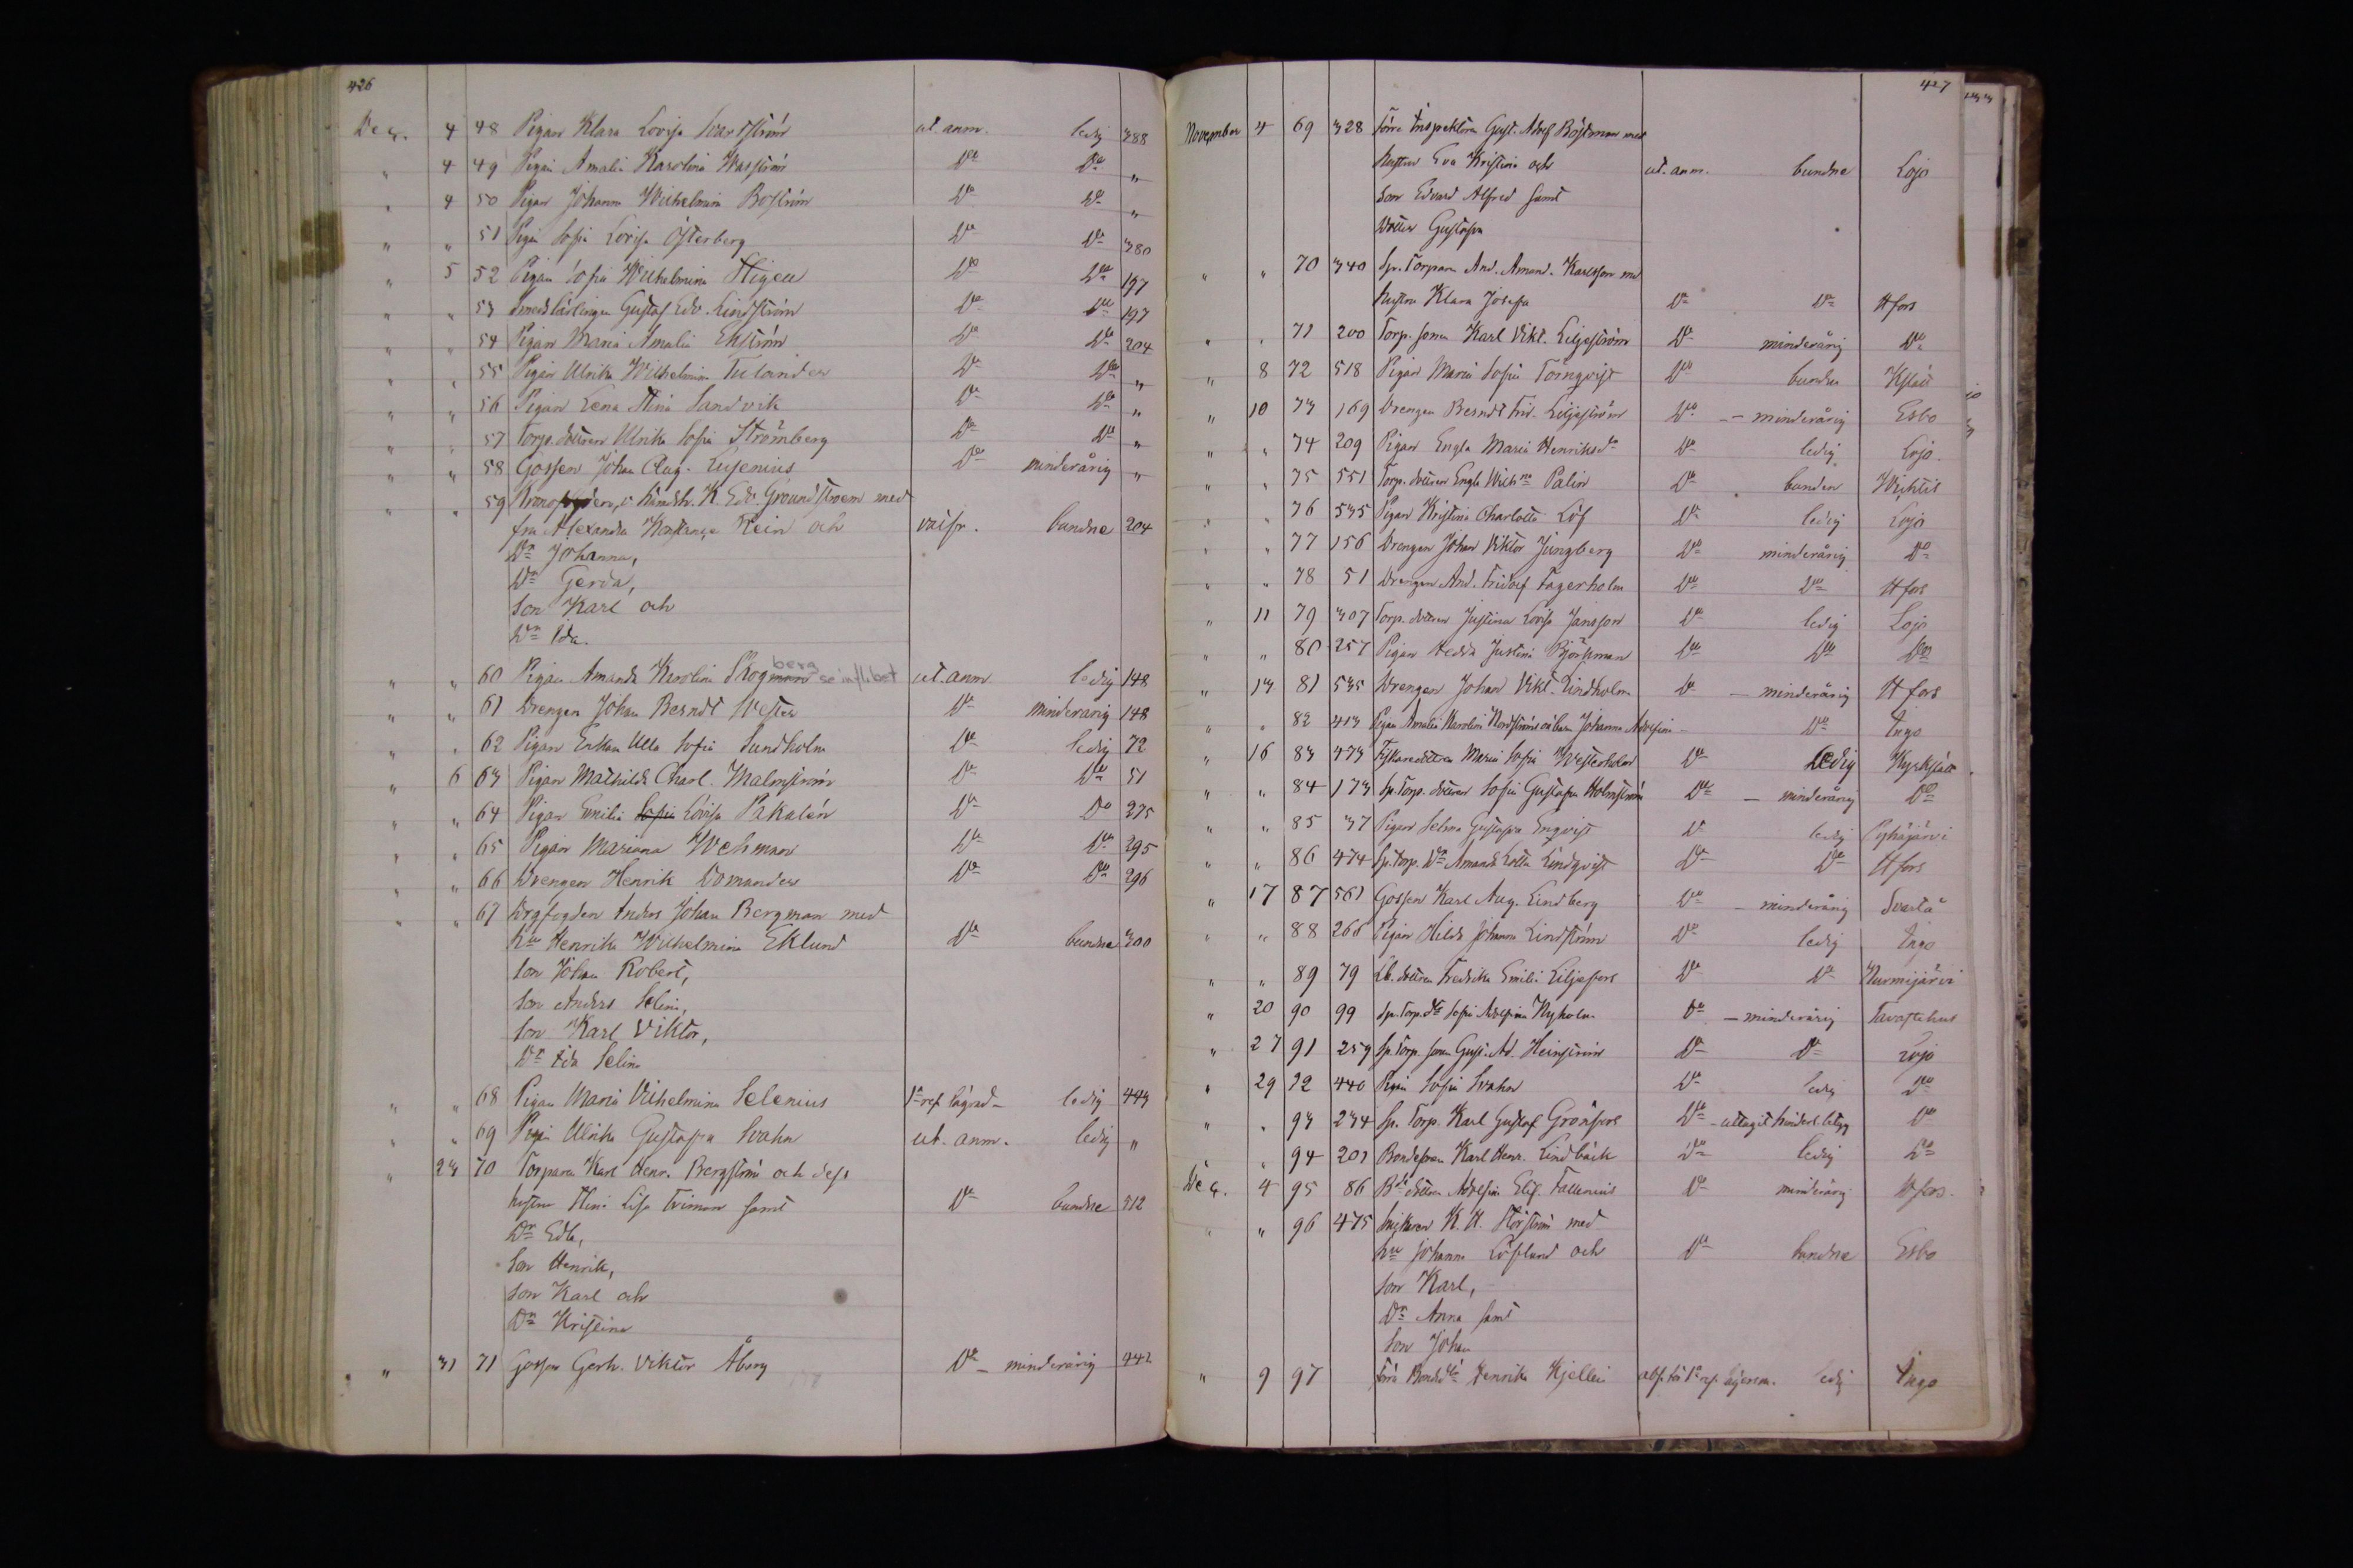 426
Dec. 4 48 Pigan Klara Lovisa Svartström ut. anm. ledig 388
" 4 49 Pigan Amalia Karolina Wasström Do Do "
" 4 50 Pigan Johanna Wilhelmina Boström Do Do "
" " 51 Pigan Sofia Lovisa Österberg Do Do 380
" 5 52 Pigan Sofia Wilhelmina Stigell Do Do 197
" " 53 Smedslärlingen Gustaf Edv. Lindström Do Do 197
" " 54 Pigan Maria Amalia Ekström Do Do 204
" " 55 Pigan Ulrika Wilhelmina Tulander Do Do "
" " 56 Pigan Lena Stina Sandvik Do Do "
" " 57 Torp. dottren Ulrika Sofia Strömberg Do Do "
" " 58 Gossen Johan Aug. Lusenius Do minderårig "
" " 59 Kronofogden, v. häradsh. K. Edv. Groundstroem med
fru Alexandra Konstance Rein och bundne 204
Dr Johanna,
Dr Gerda,
Son Karl och
Dr Ida.
" " 60 Pigan Amanda Karolina Skogman berg se inflbet ut. anm ledig 148
" " 61 Drengen Johan Berndt Wester Do minderårig 148
" " 62 Pigan Erika Ulla Sofia Sundholm Do ledig 72
" 6 63 Pigan Mathilda Charl. Malmström Do Do 51
" " 64 Pigan Emilia Sofia Lovisa Pakalén Do Do 275
" " 65 Pigan Mariana Wehman Do Do 295
" " 66 Drengen Henrik Domander Do Do 296
" " 67 Brgfogden Anders Johan Bergman med
hu Henrika Wilhelmina Eklund Do bundne 300
Son Johan Robert,
Son Anders Selim,
Son Karl Viktor,
Dr Ida Selina
" " 68 Pigan Maria Vilhelmina Selenius ledig 443
" " 69 Pigan Ulrika Gustafva Svahn ut. anm. ledig "
" 23 70 Torparen Karl Henr. Bergström och dess
hustru Stina Lisa Friman samt Do bundne 512
Dr Edla,
Son Henrik,
Son Karl och
Dr Kristina
" 31 71 Gossen Gerh. Viktor Åberg Do - minderårig 442
427
November 4 69 328 Förra Inspektoren Gust. Adolf Böstman med
hustrun Eva Kristina och ut. anm. bundne Lojo
Son Edvard Alfred samt
Dotter Gustafva
" " 70 340 Sp. Torparen And. Amand. Karlsson med
hustru Klara Josefa Do Do Hfors
" " 71 200 Torp. sonen Karl Vikt. Liljeström Do minderårig Do
" 8 72 518 Pigan Maria Sofia Törnqvist Do bunden Kslätt
" 10 73 169 Drengen Berndt Frid. Liljeström Do - minderårig Esbo
" " 74 209 Pigan Engla Maria Henriksdr Do ledig Lojo.
" " 75 551 Torp. dottren Engla Wilhna Palin Do bunden Wichtis
" " 76 535 Pigan Kristina Charlotta Löf Do ledig Lojo
" " 77 156 Drengen Johan Viktor Jungberg Do minderårig Do
" " 78 51 Drengen And. Fridolf Fagerholm Do Do Hfors
" 11 79 307 Torp. dottren Justina Lovisa Jansson Do ledig Lojo
" " 80 257 Pigan Hedda Justina Björkman Do Do Do
" 13 81 535 Drengen Johan Vikt. Lindholm Do - minderårig Hfors
" " 82 413 Pigan Amalia Karolina Nordströms oä barn Johanna Adolfina - Do Ingo
" 16 83 473 Fiskaredottren Maria Sofia Westerholm Do ledig Kyrkslätt
" " 84 173 Sp. Torp. dottren Sofia Gustafva Holmström Do - minderårig Do
" " 85 37 Pigan Selma Gustafva Enqvist Do ledig Pyhäjärvi
" " 86 474 Sp. torp. Dr Amanda Lotta Lindqvist Do Do Hfors
" 17 87 561 Gossen Karl Aug. Lindberg Do - minderårig Svartå
" " 88 266 Pigan Hilda Johanna Lindström Do ledig Ingo
" " 89 79 dottren Fredrika Emilia Liljefors Do Do Nurmijärvi
" 20 90 99 Sp. Torp. dr Sofia Adolfina Nyholm Do - minderårig Tavastehus
" 27 91 259 Sp. Torp. sonen Gust. Ad. Heinström Do Do Lojo
" 29 92 440 Pigan Sofia Svahn Do ledig Do
" " 93 234 Sp. Torp. Karl Gustaf Grönfors Do - uttagit hinderl. betyg Do
" " 94 201 Bondesonen Karl Henr. Lindbäck Do ledig Do
Dec. 4 95 86 dottren Adolfina Elis. Fallenius Do minderårig Hfors.
" " 96 475 Snickaren K. A. Storström med
hu Johanna Löflund och Do bundne Esbo
Son Karl,
Dr Anna samt
Son Johan
" 9 97 Förra Bondedr Henrika Kjellin ledig Ingo